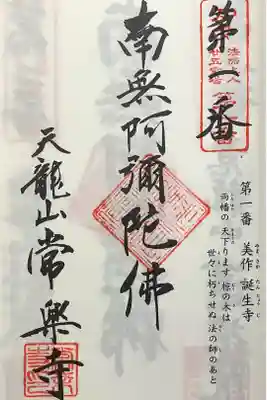 第一番
第一番 美作 誕生寺
両幡の 天下ります 椋の木は
世々に朽ちせぬ 法の師のあと
南無阿彌陀佛
天龍山 常樂寺